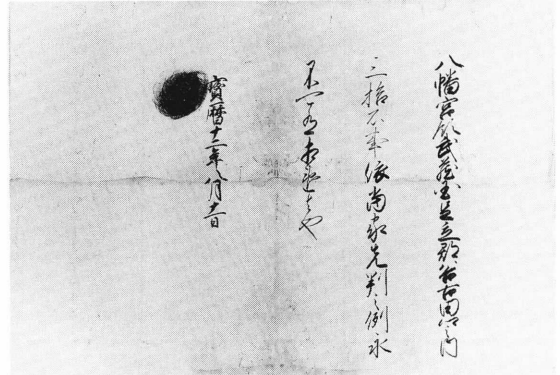 八幡宮領武蔵国足立郡谷古田之内
三拾石事依当家先判之例永
不可有相違者也
寳暦十二年八月十一日